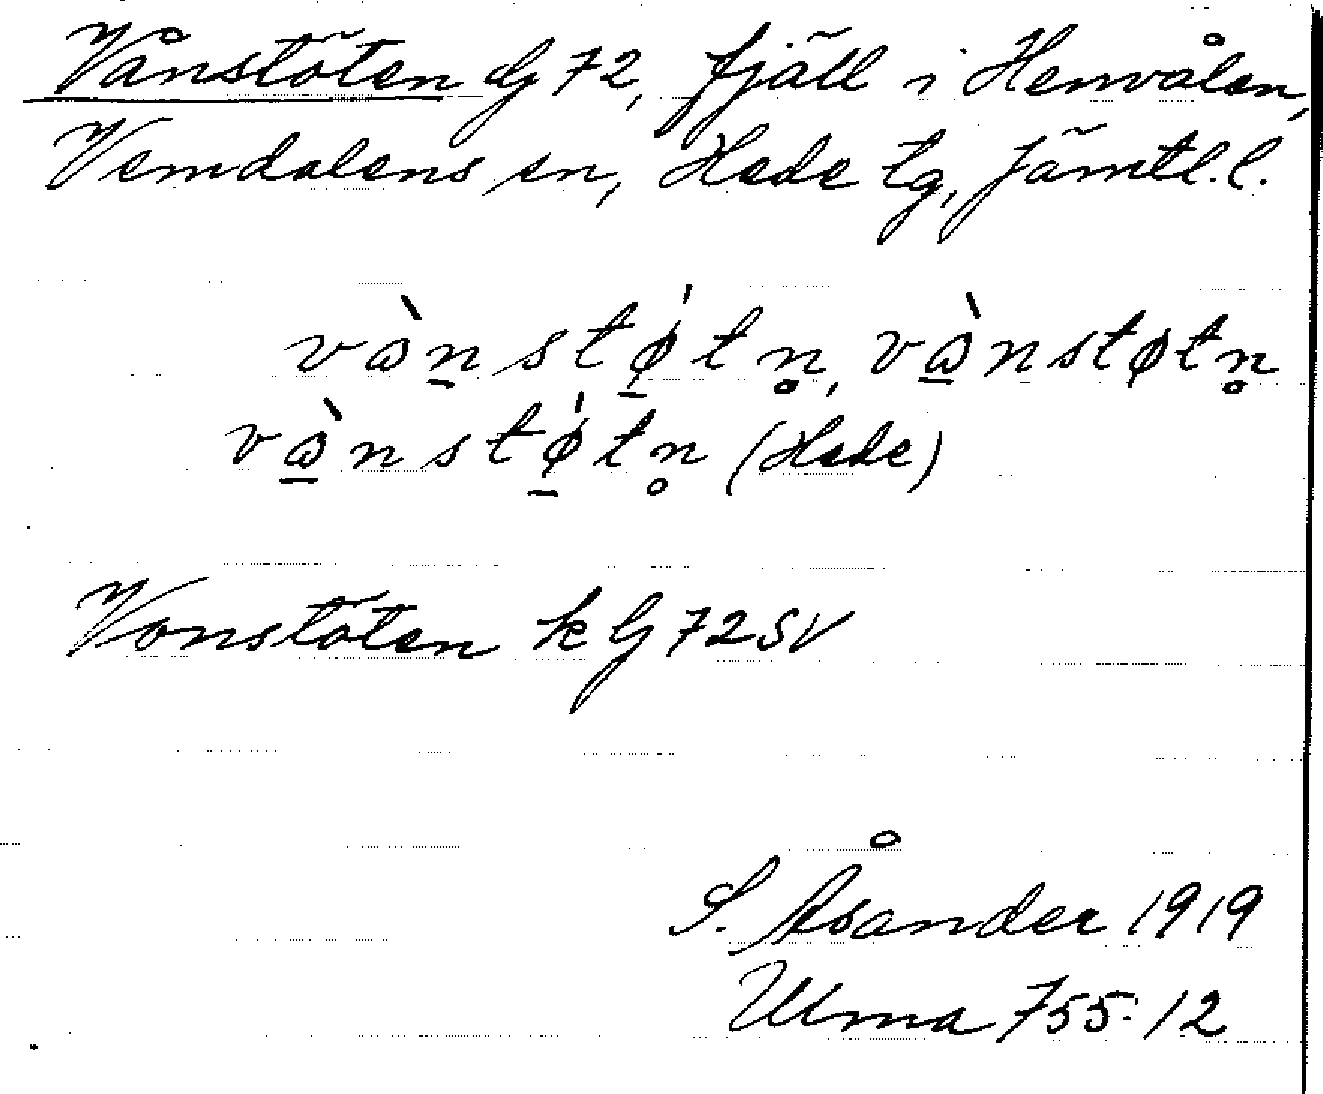 Vånstöten G 72, fjäll i Henvålen,
Vemdalens sn, Hede tg, Jämtl. l.
vὼn̲stǿ̲tn̥, vὼ̲nstøtn̥
vὼ̲nstǿ̲tn̥ (Hede)
Vonstöten k G 72 SV
S. Åsander 1919
Ulma 755:12